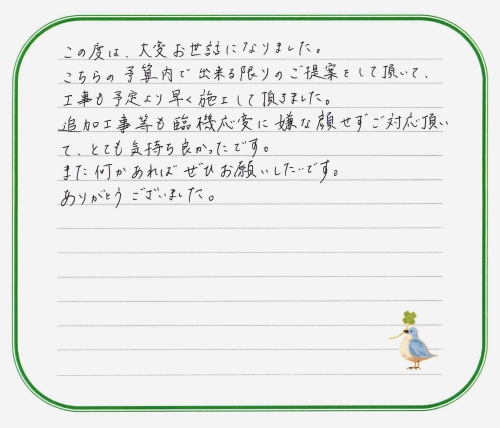 この度は、大変お世話になりました。
こちらの予算内で出来る限りのご提案をして頂いて、
工事も予定より早く施工して頂きました。
追加工事等も臨機応変に嫌な顔せずご対応頂い
て、とても気持ち良かったです。
また何かあればぜひお願いしたいです。
ありがとうございました。